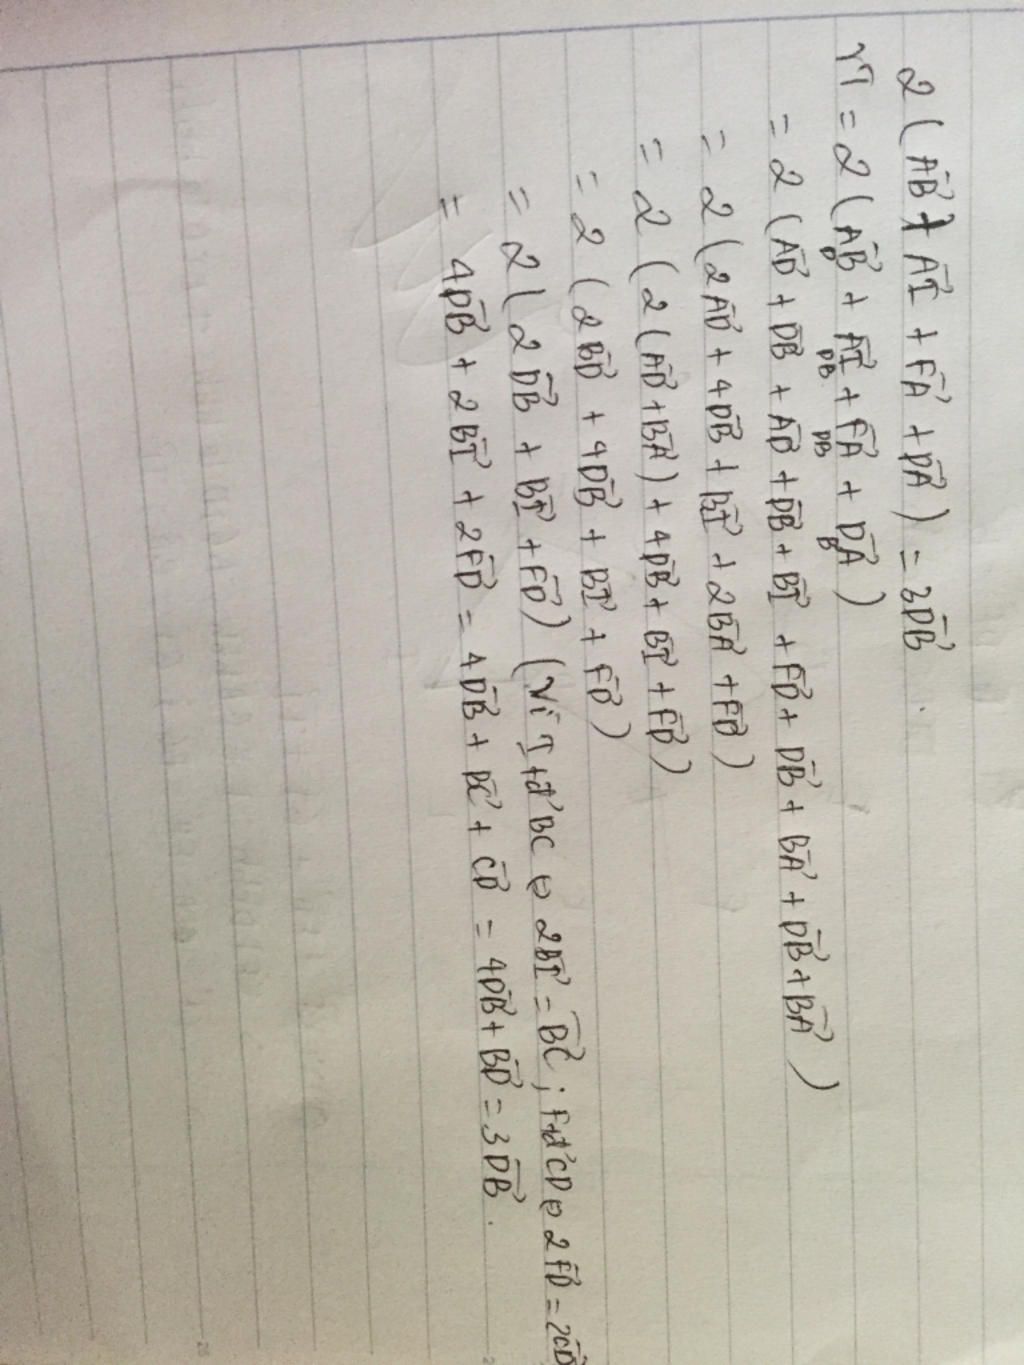 2(AB⃗ + AI⃗ + FA⃗ + DA⃗) = 3DB⃗.
VT = 2(AB⃗ + AI⃗ + FA⃗ + DA⃗)
D DB DB B
= 2(AD⃗ + DB⃗ + AD⃗ + DB⃗ + BI⃗ + FD⃗ + DB⃗ + BA⃗ + DB⃗ + BA⃗)
= 2(2AD⃗ + 4DB⃗ + BI⃗ + 2BA⃗ + FD⃗)
= 2(2(AD⃗ + BA⃗) + 4DB⃗ + BI⃗ + FD⃗)
= 2(2BD⃗ + 4DB⃗ + BI⃗ + FD⃗)
= 2(2DB⃗ + BI⃗ + FD⃗) (Vì I tđ BC ⇔ 2BI⃗ = BC⃗; F tđ CD ⇔ 2FD⃗ = 2CD⃗
= 4DB⃗ + 2BI⃗ + 2FD⃗ = 4DB⃗ + BC⃗ + CD⃗ = 4DB⃗ + BD⃗ = 3DB⃗.